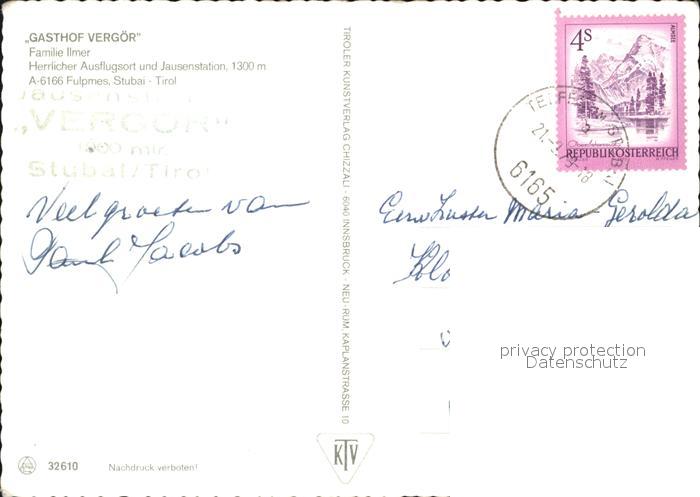 „GASTHOF VERGÖR"
Familie Ilmer
Herrlicher Ausflugsort und Jausenstation, 1300 m
A-6166 Fulpmes, Stubai - Tirol
Jausenstation
„VERGÖR"
1300 mtr.
Stubai/Tirol
Veel groeten van
Paul Jacobs
TIROLER KUNSTVERLAG CHIZZALI · 6040 INNSBRUCK · NEU-RUM, KAPLANSTRASSE 10
KTV
32610
Nachdruck verboten!
4S
ALMSEE
REPUBLIK ÖSTERREICH
6165
Eerw Zuster Maria Gerolda
Klo
privacy protection
Datenschutz